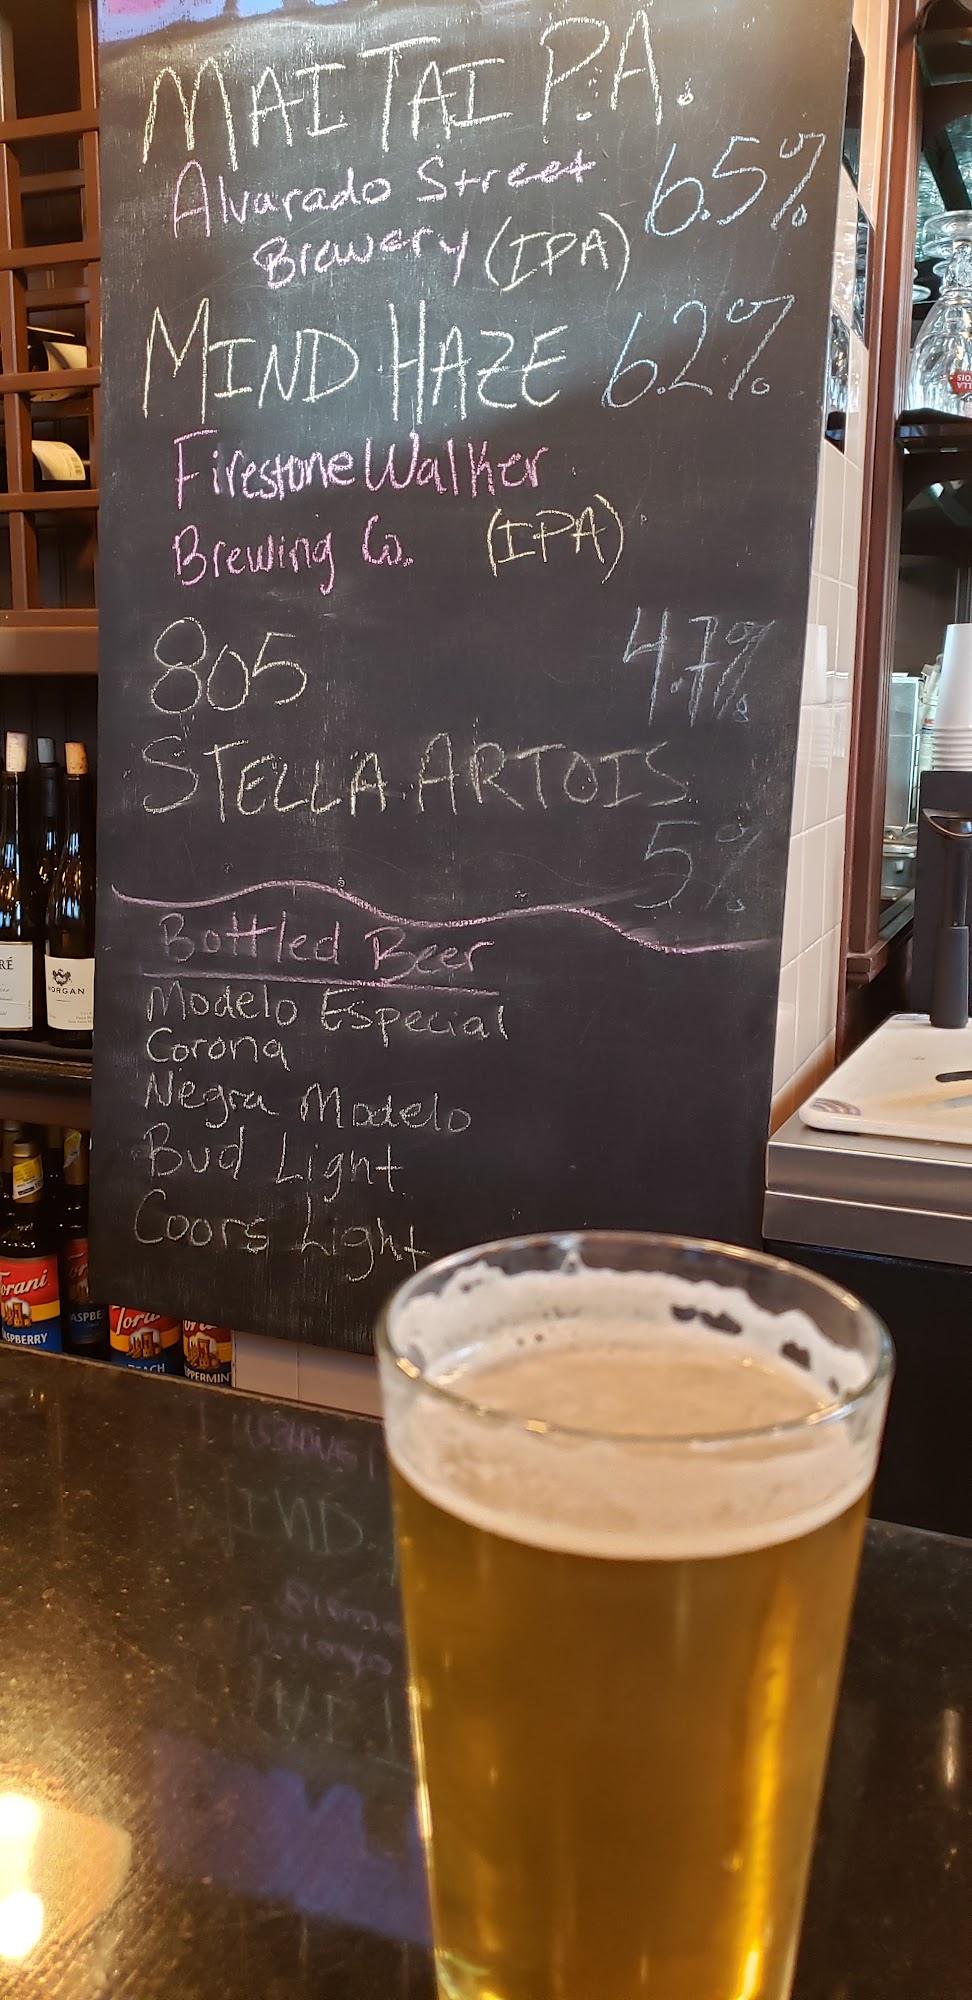 MAI TAI P.A.
Alvarado Street 6.5%
Brewery (IPA)
MIND HAZE 6.2%
Firestone Walker
Brewing Co. (IPA)
805 4.7%
STELLA ARTOIS
5%
Bottled Beer
Modelo Especial
Corona
Negra Modelo
Bud Light
Coors Light
RÉ
MORGAN
Torani
RASPBERRY